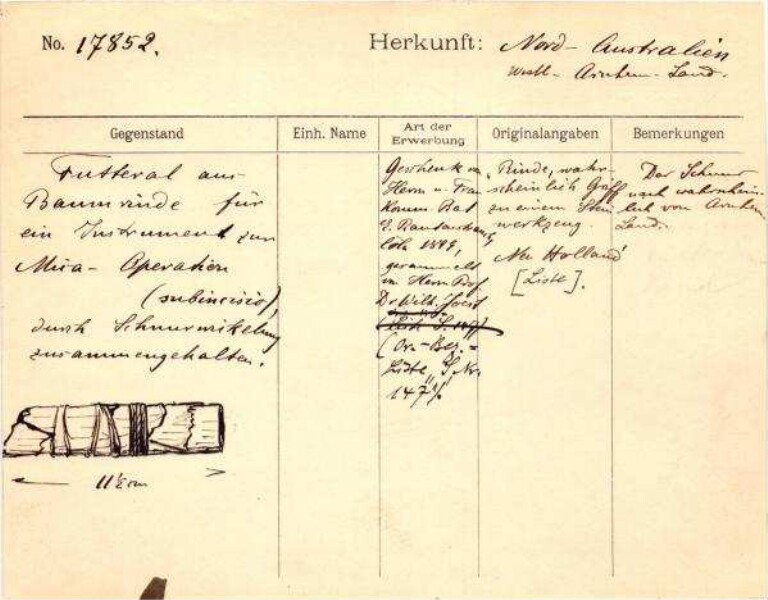 No. 17852.
Herkunft: Nord-Australien
Westl-Arnhem-Land.
Gegenstand
Einh. Name
Art der
Erwerbung
Originalangaben
Bemerkungen
Futteral aus
Baumrinde für
ein Instrument zur
Mica-Operation
(subincisio),
durch Schnurwikelung
zusammengehalten.
11½cm
Geschenk v.
Herrn u. Frau
Komm. Rat
E. Rautenstrauch
Cöln 1899,
gesammelt
v. Herrn Prof.
Dr Wilh. Joest
(Or.-Bez.=
Liste, S. Nr.
147
„Rinde, wahr-
scheinlich Griff
zu einem Stein
werkzeug.
Neu Holland"
[Liste].
Der Schnur
nach wahrschein-
lich von Arnhem
Land.